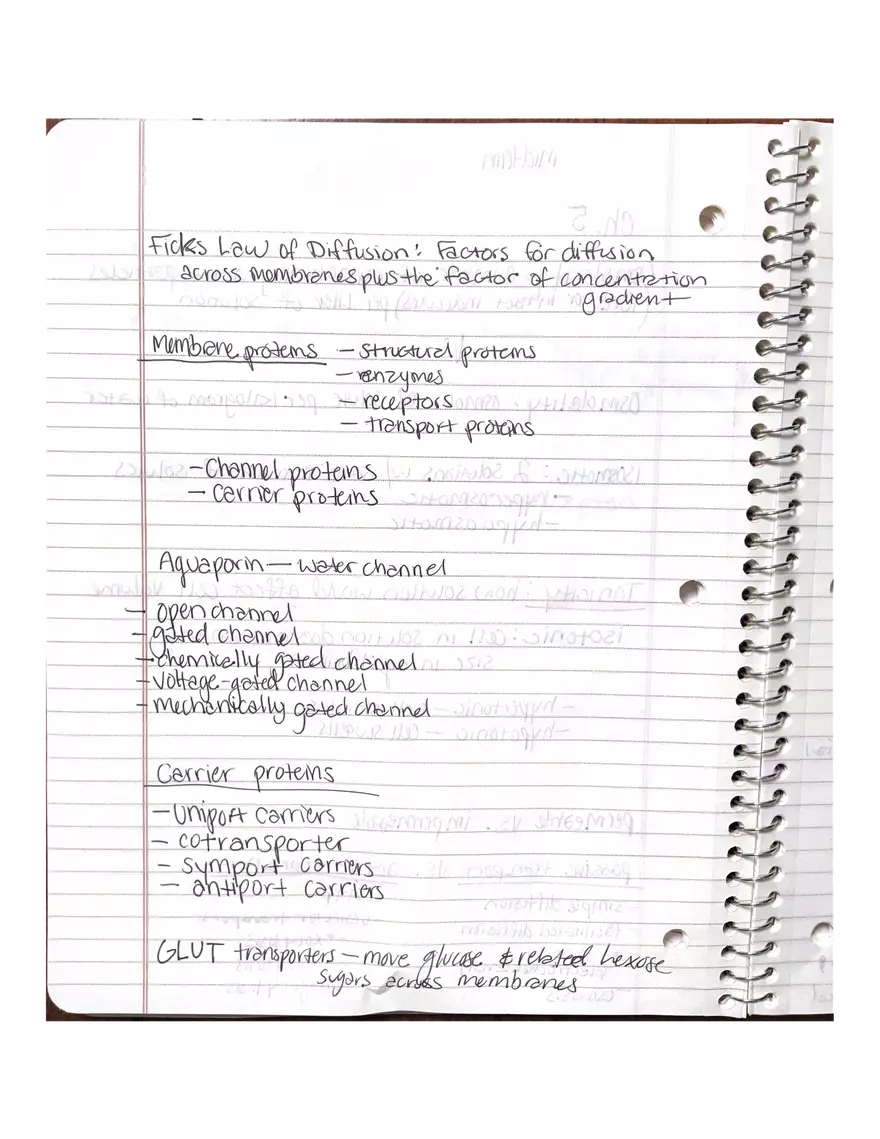 Ficks Law of Diffusion: Factors for diffusion
across membranes plus the factor of concentration
gradient
Membrane proteins - structural proteins
- enzymes
- receptors
- transport proteins
- Channel proteins
- Carrier proteins
Aquaporin - water channel
- open channel
- gated channel
- chemically gated channel
- voltage-gated channel
- mechanically gated channel
Carrier proteins
- Uniport carriers
- cotransporter
- symport carriers
- antiport carriers
GLUT transporters - move glucose & related hexose
sugars across membranes